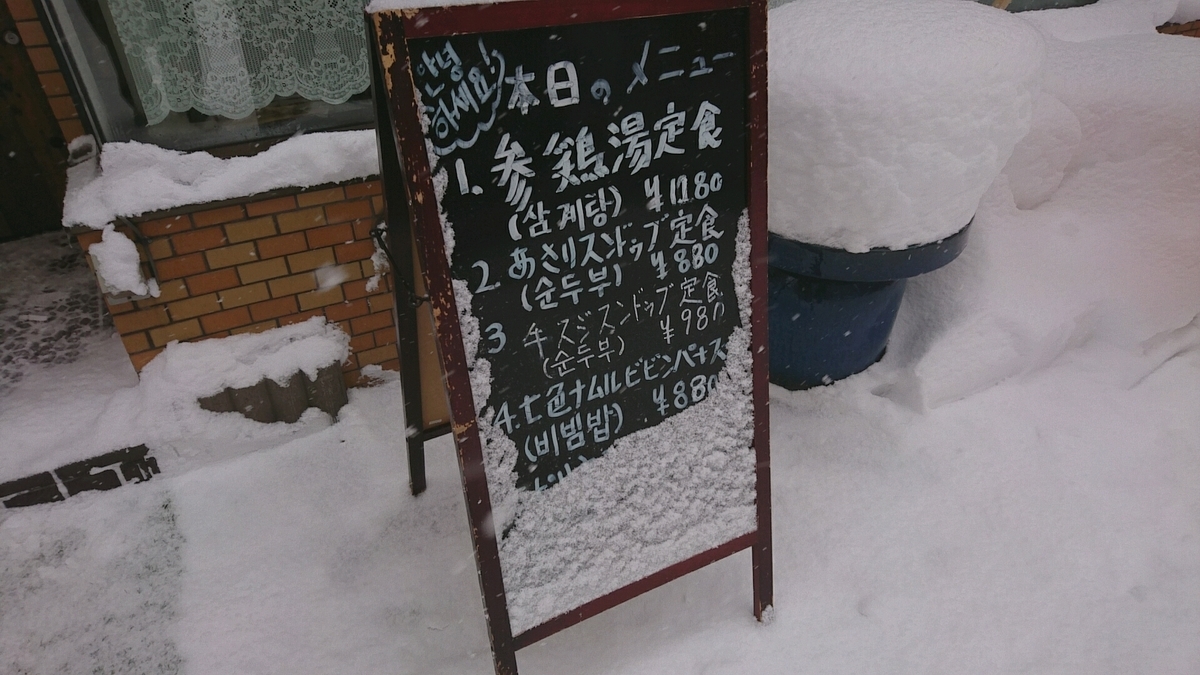 안녕
하세요!
本日のメニュー
1. 参鶏湯定食
(삼계탕) ¥1180
2 あさりスンドゥブ定食
(순두부) ¥880
3 牛スジスンドゥブ定食
(순두부) ¥980
4. 七色ナムルビビンバ
(비빔밥) ¥880